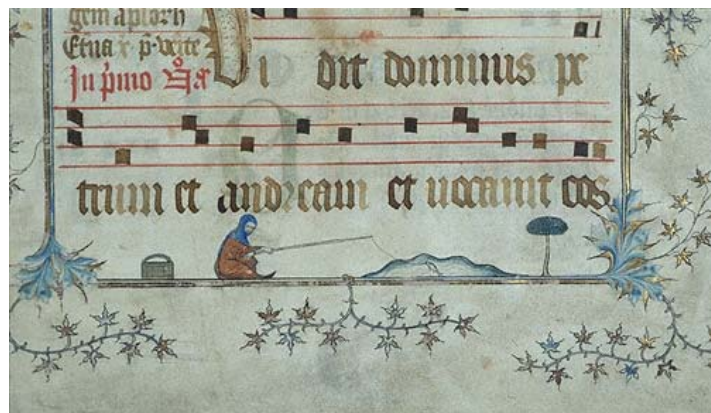 gem aplorū
Et un͛ e p̄ veꝛte
In p̄mo
Di dit dominus pe
trum et andream et uocauit eos